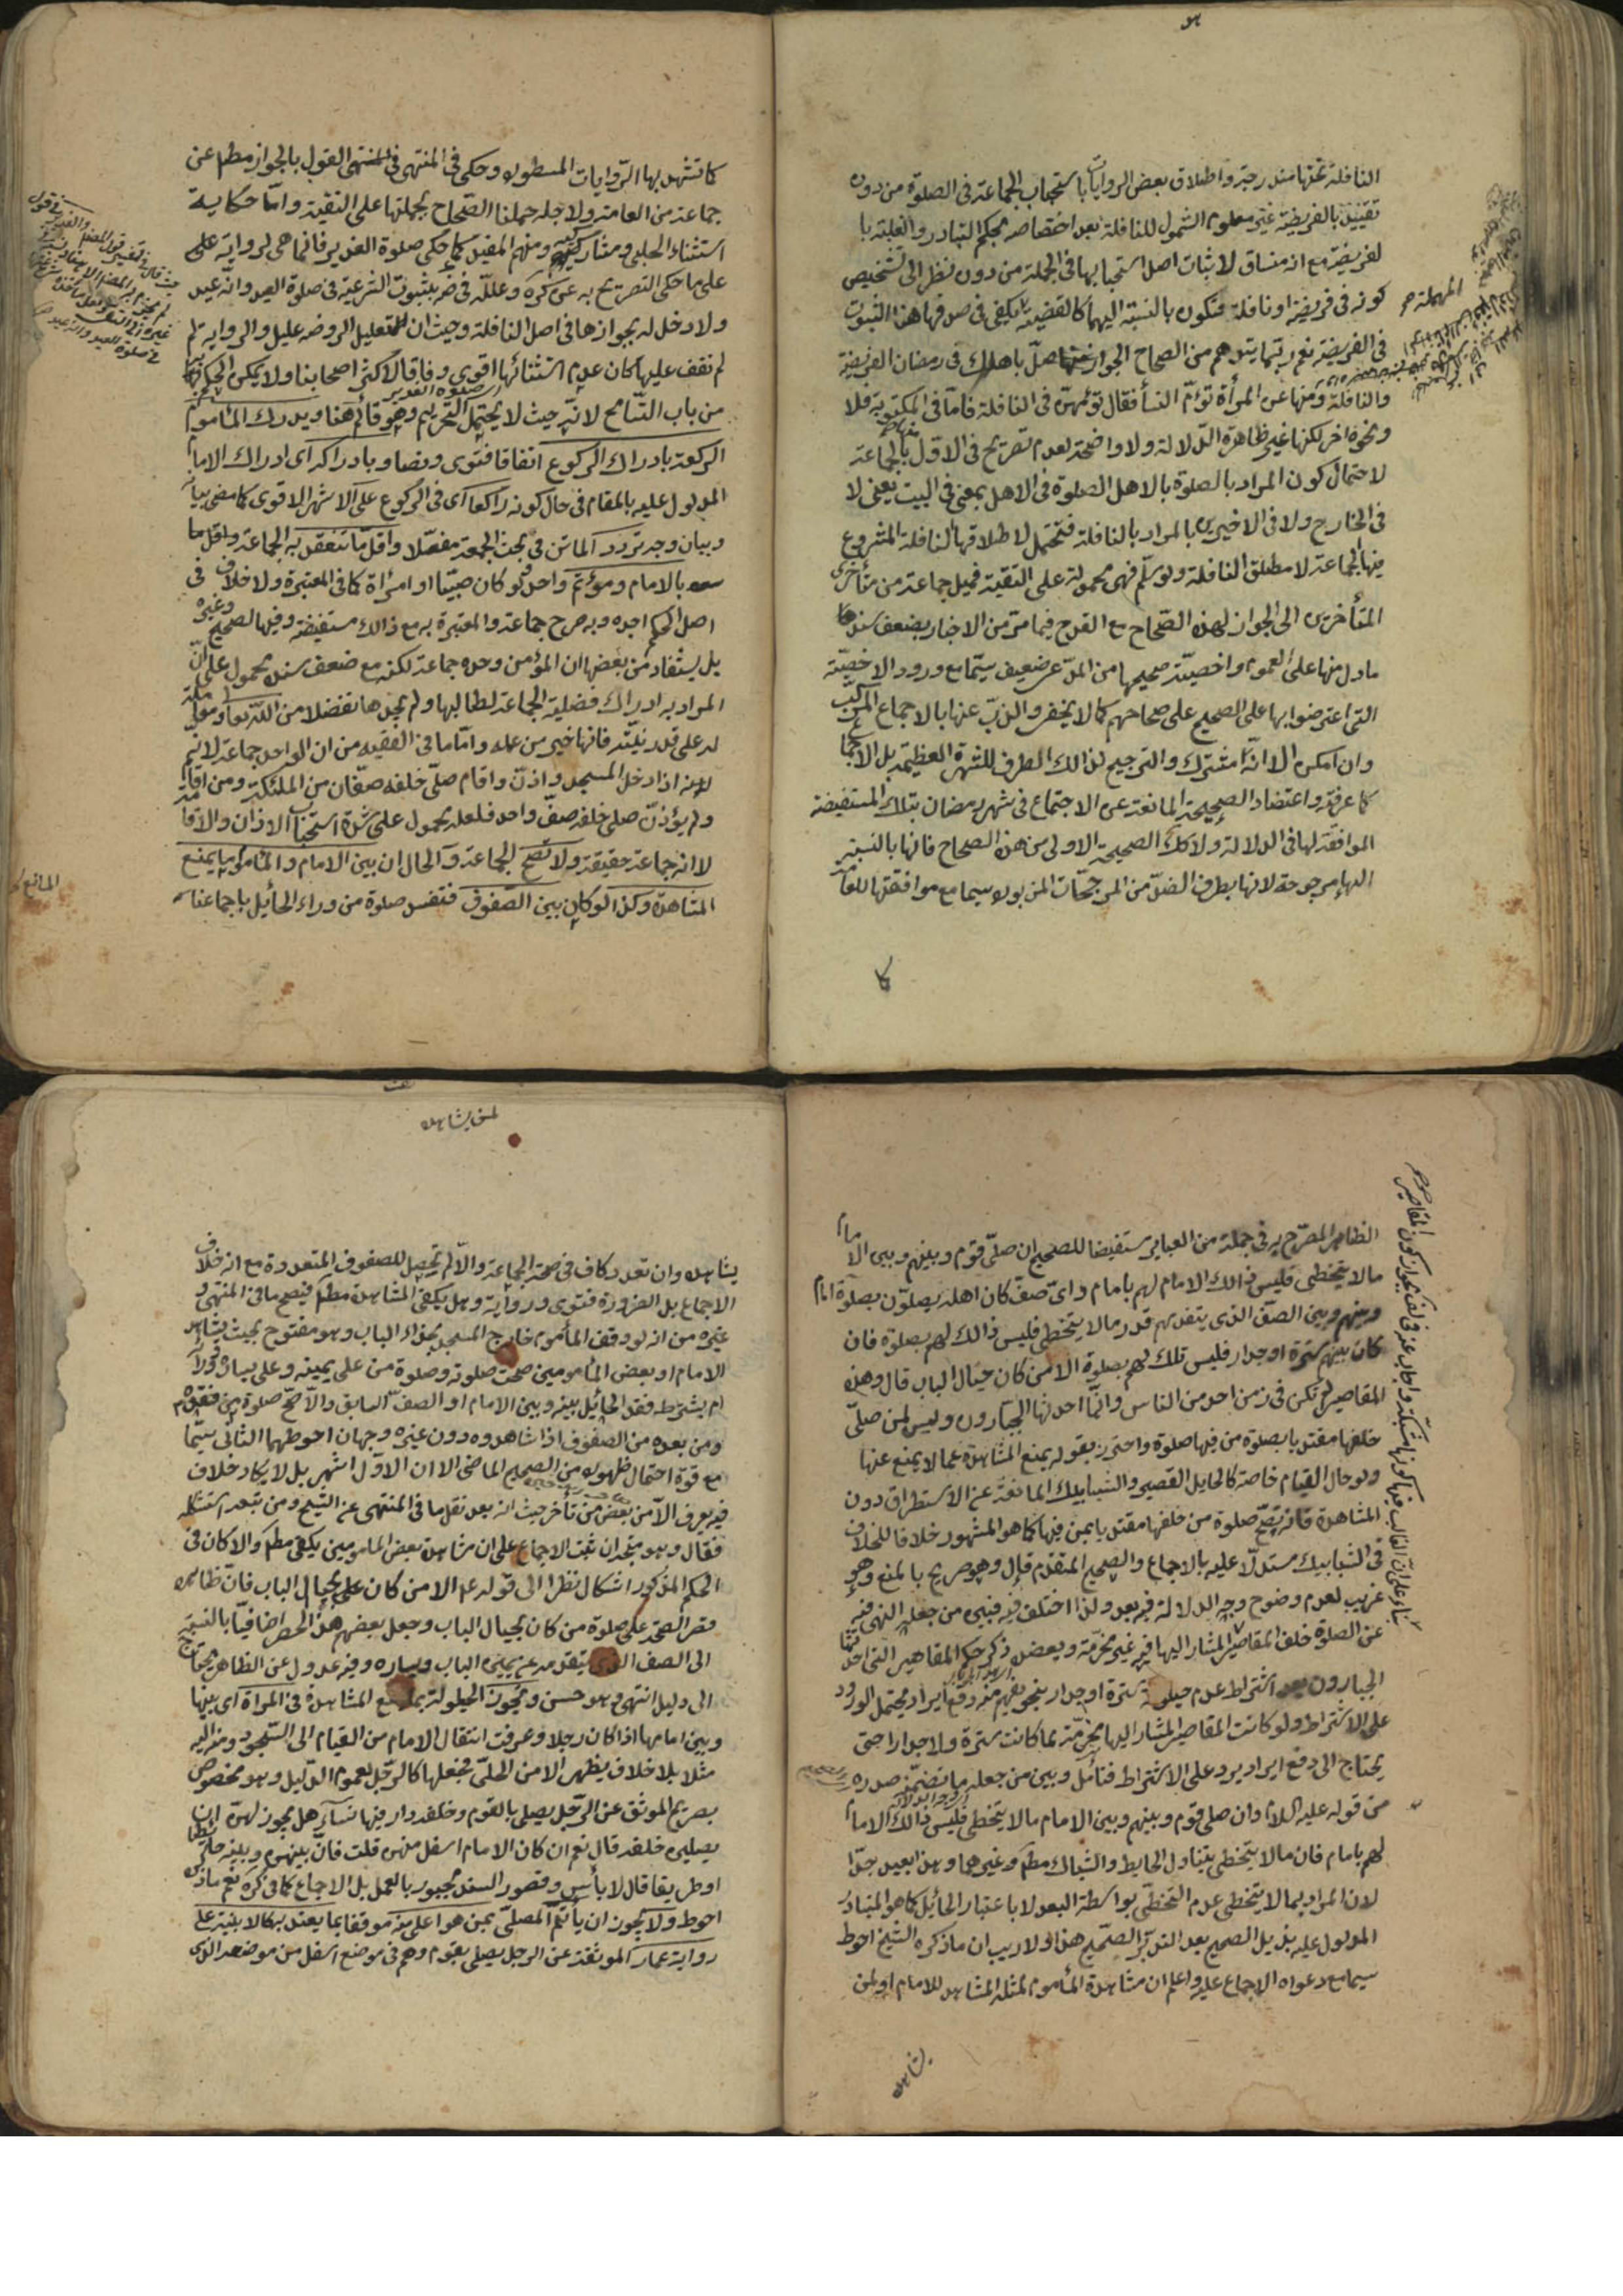 النافلة تحتها مندرجة واطلاق بعض الروايات باستحباب الجماعة في الصلوة من دون
تقييد بالفريضة غير معلوم الشمول للنافلة بعد اختصاصه بحكم التبادر والغلبة با
لفريضة مع انه منساق لاثبات اصل استحبابها في الجملة من دون نظر الى تشخيص
كونه في فريضة او نافلة فتكون بالنسبة اليهما كالقضية يكفي في صدقها هنا الثبوت
المهملة
في الفريضة نعم ربما يتوهم من الصحاح الجواز منها صل باهلك في رمضان الفريضة
والنافلة ومنها عن المرأة تؤم النسأ فقال تؤمهن في النافلة فاما في المكتوبة فلا
ونحوه اخر لكنها غير ظاهرة الدلالة ولا واضحة لعدم تصريح في الاول بالجماعة
لاحتمال كون المراد بالصلوة بالاهل الصلوة في الاهل بمعنى في البيت يعني لا
في الخارج ولا في الاخيرين بالمراد بالنافلة فتحتمل لاطلاقها النافلة المشروع
فيها الجماعة لا مطلق النافلة ولو سلم فهي محمولة على التقية فميل جماعة من متأخرى
المتأخرين الى الجواز لهذه الصحاح مع القدح فيما مر من الاخبار بضعف سند
ما دل منها على العموم واخصية صحيحها من المدعى ضعيف سيما مع ورود الاخصية
التي اعترضوا بها على الصحيح على صحاحهم كما لا يخفى والذب عنها بالاجماع المركب
وان امكن الا انه مشترك والترجيح لذلك الطرف للشهرة العظيمة بل الاجماع
كما عرفته واعتضاد الصحيحة المانعة عن الاجتماع في شهر رمضان بتلك المستفيضة
الموافقة لها في الدلالة ولا كك الصحيحة الاولى من هذه الصحاح فانها بالنسبة
اليها مرجوحة لانها بطرف الضد من المرجحات المزبورة سيما مع موافقتها للعامة
كما
كما تشهد بها الروايات المسطورة وحكى في المنتهى القول بالجواز مطلقا عن
جماعة من العامة ولاجله حملنا الصحاح بجملتها على التقية واما حكاية
استثناء الحلبي ومشاركيه ومنهم المفيد كما حكى صلوة الغدير فانما هي لرواية على
على ما حكى التصريح به عن كره وعلله في ضه بثبوت الشرعية في صلوة العيد وانه عيد
ولا دخل له بجوازها في اصل النافلة وحيث ان التعليل الروضه عليل والرواية لم
لم نقف عليها كان عدم استثنائها اقوى وفاقا لاكثر اصحابنا ولا يمكن الحكم بها
صلوة الغدير
من باب التسامح لانه حيث لا يحتمل التحريم وهو قائم هنا ويدرك المأموم
الركعة بادراك الركوع اتفاقا فتوى ونصا وبادراكه اى ادراك الامام
المدلول عليه بالمقام في حال كونه راكعا اى في الركوع على الاشهر الاقوى كما مضى بيانه
وبيان وجه تردد الماتن في بحث الجمعة مفصلا واقل ما تنعقد به الجماعة واقل ما
بالامام ومؤتم واحد ولو كان صبيا او امرأة كما في المعتبرة ولا خلاف في
اصل الحكم اجده وبه صرح جماعة والمعتبرة به مع ذلك مستفيضة وفيها الصحيح وغيره
بل يستفاد من بعضها ان المؤمن وحده جماعة لكنه مع ضعف سنده محمول على ان
المراد به ادراك فضيلة الجماعة لطالبها ولم يجدها تفضلا من الله تعالى
له على قدر نيته فانها خير من عمله واما ما في الفقيه من ان الواحد جماعة لانه
لانه اذا دخل المسجد واذن واقام صلى خلفه صفان من الملئكة ومن اقام
ولم يؤذن صلى خلفه صف واحد فلعله محمول على شدة استحباب الاذان والاقامة
لا انه جماعة حقيقة ولا تصح الجماعة والحال ان بين الامام والمأموم ما يمنع
المشاهدة وكذا لو كان بين الصفوف فتفسد صلوة من وراء الحائل باجماعنا
المانع
الظاهر المصرح به في جملة من العباير مستفيضا للصحيح ان صلى قوم وبينهم وبين الامام
ما لا يتخطى فليس ذلك الامام لهم بامام واى صف كان اهله يصلون بصلوة امام
وبينهم وبين الصف الذى يتقدمهم قدر ما لا يتخطى فليس ذالك لهم بصلوة فان
كان بينهم سترة او جدار فليس تلك لهم بصلوة الا من كان حيال الباب قال وهذه
المقاصير لم تكن في زمن احد من الناس وانما احدثها الجبارون وليس لمن صلى
خلفها مقتديا بصلوة من فيها صلوة واحترز بقوله يمنع المشاهدة عما لا يمنع عنها
ولو حال القيام خاصة كالحايل القصير والشبابيك المانعة عن الاستطراق دون
المشاهدة فانه تصح صلوة من خلفها مقتديا بمن فيها كما هو المشهور خلافا للخلاف
في الشبابيك مستدلا عليه بالاجماع والصحيح المتقدم قال وهو صريح بالمنع وهو
غريب لعدم وضوح وجه الدلالة فيه بعد ولذا اختلف فيه فبين من جعله النهى فيه
عن الصلوة خلف المقاصير المشار اليها فيه غير مخرمة وبعض ذكر حكم المقاصير التي احدثها
الجبارون بعد اشتراط عدم حيلولة سترة او جدار بنحو يفهم منه دفع ايراد محتمل الورود
على الاشتراط ولو كانت المقاصير المشار اليها مخرمة لما كانت سترة ولا جدارا حتى
يحتاج الى دفع ايراد يرد على الاشتراط فتأمل وبين من جعله ما تضمنه صدره
من قوله عليه السلام وان صلى قوم وبينهم وبين الامام ما لا يتخطى فليس ذالك الامام
لهم بامام فان ما لا يتخطى يتناول الحايط والشباك مطلقا وغيرهما وهذا بعيد جدا
لان المراد بما لا يتخطى عدم التخطى بواسطة البعد لا باعتبار الحائل كما هو المتبادر
المدلول عليه بذيل الصحيح بعد التدبر الصحيح هذا ولا ريب ان ما ذكره الشيخ احوط
سيما مع دعواه الاجماع عليه واعلم ان مشاهدة المأموم لمثله المشاهد للامام او لمن
يشاهده
لمن يشاهده
يشاهده وان تعدد كاف في صحة الجماعة والا لم تحصل للصفوف المتعددة مع انه خلاف
الاجماع بل الضرورة فتوى ورواية وهل يكفى المشاهدة مطلقا فيصح ما في المنتهى و
غيره من انه لو وقف المأموم خارج المسجد بحذاء الباب وهو مفتوح بحيث يشاهد
الامام او بعض المأمومين صحت صلوته وصلوة من على يمينه وعلى يساره وورائه
ام بشرط فقد الحائل بينه وبين الامام او الصف السابق والا صح صلوة من
ومن بعده من الصفوف اذا شاهدوه دون غيره وجهان احوطهما الثانى سيما
مع قوة احتمال ظهوره من الصحيح الماضى الا ان الاول اشهر بل لا يكاد خلاف
فيه يعرف الا من بعض من تأخر حيث انه بعد نقل ما في المنتهى عن الشيخ ومن تبعه استشكله
فقال وهو متجه ان ثبت الاجماع على ان مشاهدة بعض المامومين يكفى مطلقا والا كان في
الحكم المذكور اشكال نظرا الى قوله عم الا من كان بحيال الباب فان ظاهره
قصر الصحة على صلوة من كان بحيال الباب وجعل بعضهم هذا الحصر اضافيا بالنسبة
الى الصف الذى يتقدمه عن يمين الباب ويساره وفيه عدول عن الظاهر يحتاج
الى دليل انتهى وهو حسن وتجوز الحيلولة بما يمنع المشاهدة في المراة اى بينها
وبين امامها اذا كان رجلا وعرفت انتقال الامام من القيام الى السجود
مثلا بلا خلاف يظهر الا من الحلى فجعلها كالرجل لعموم الدليل وهو مخصوص
بصريح الموثق عن الرجل يصلى بالقوم وخلفه دار فيها نساء هل يجوز لهن ان
يصلين خلفه قال نعم ان كان الامام اسفل منهن قلت فان بينهن وبينه حائطا
او طريقا قال لا بأس وقصور السند مجبور بالعمل بل الاجماع كما في كره نعم ما ذكره
احوط ولا يجوز ان يأتم المصلى بمن هو اعلى منه موقفا بما يعتد به كالابنية على
رواية عمار الموثقة عن الرجل يصلى بقوم وهم في موضع اسفل من موضعه الذى